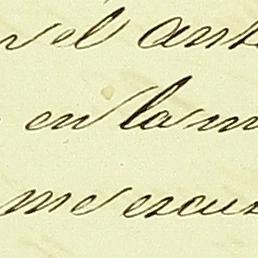 el ant
en la m
me escus